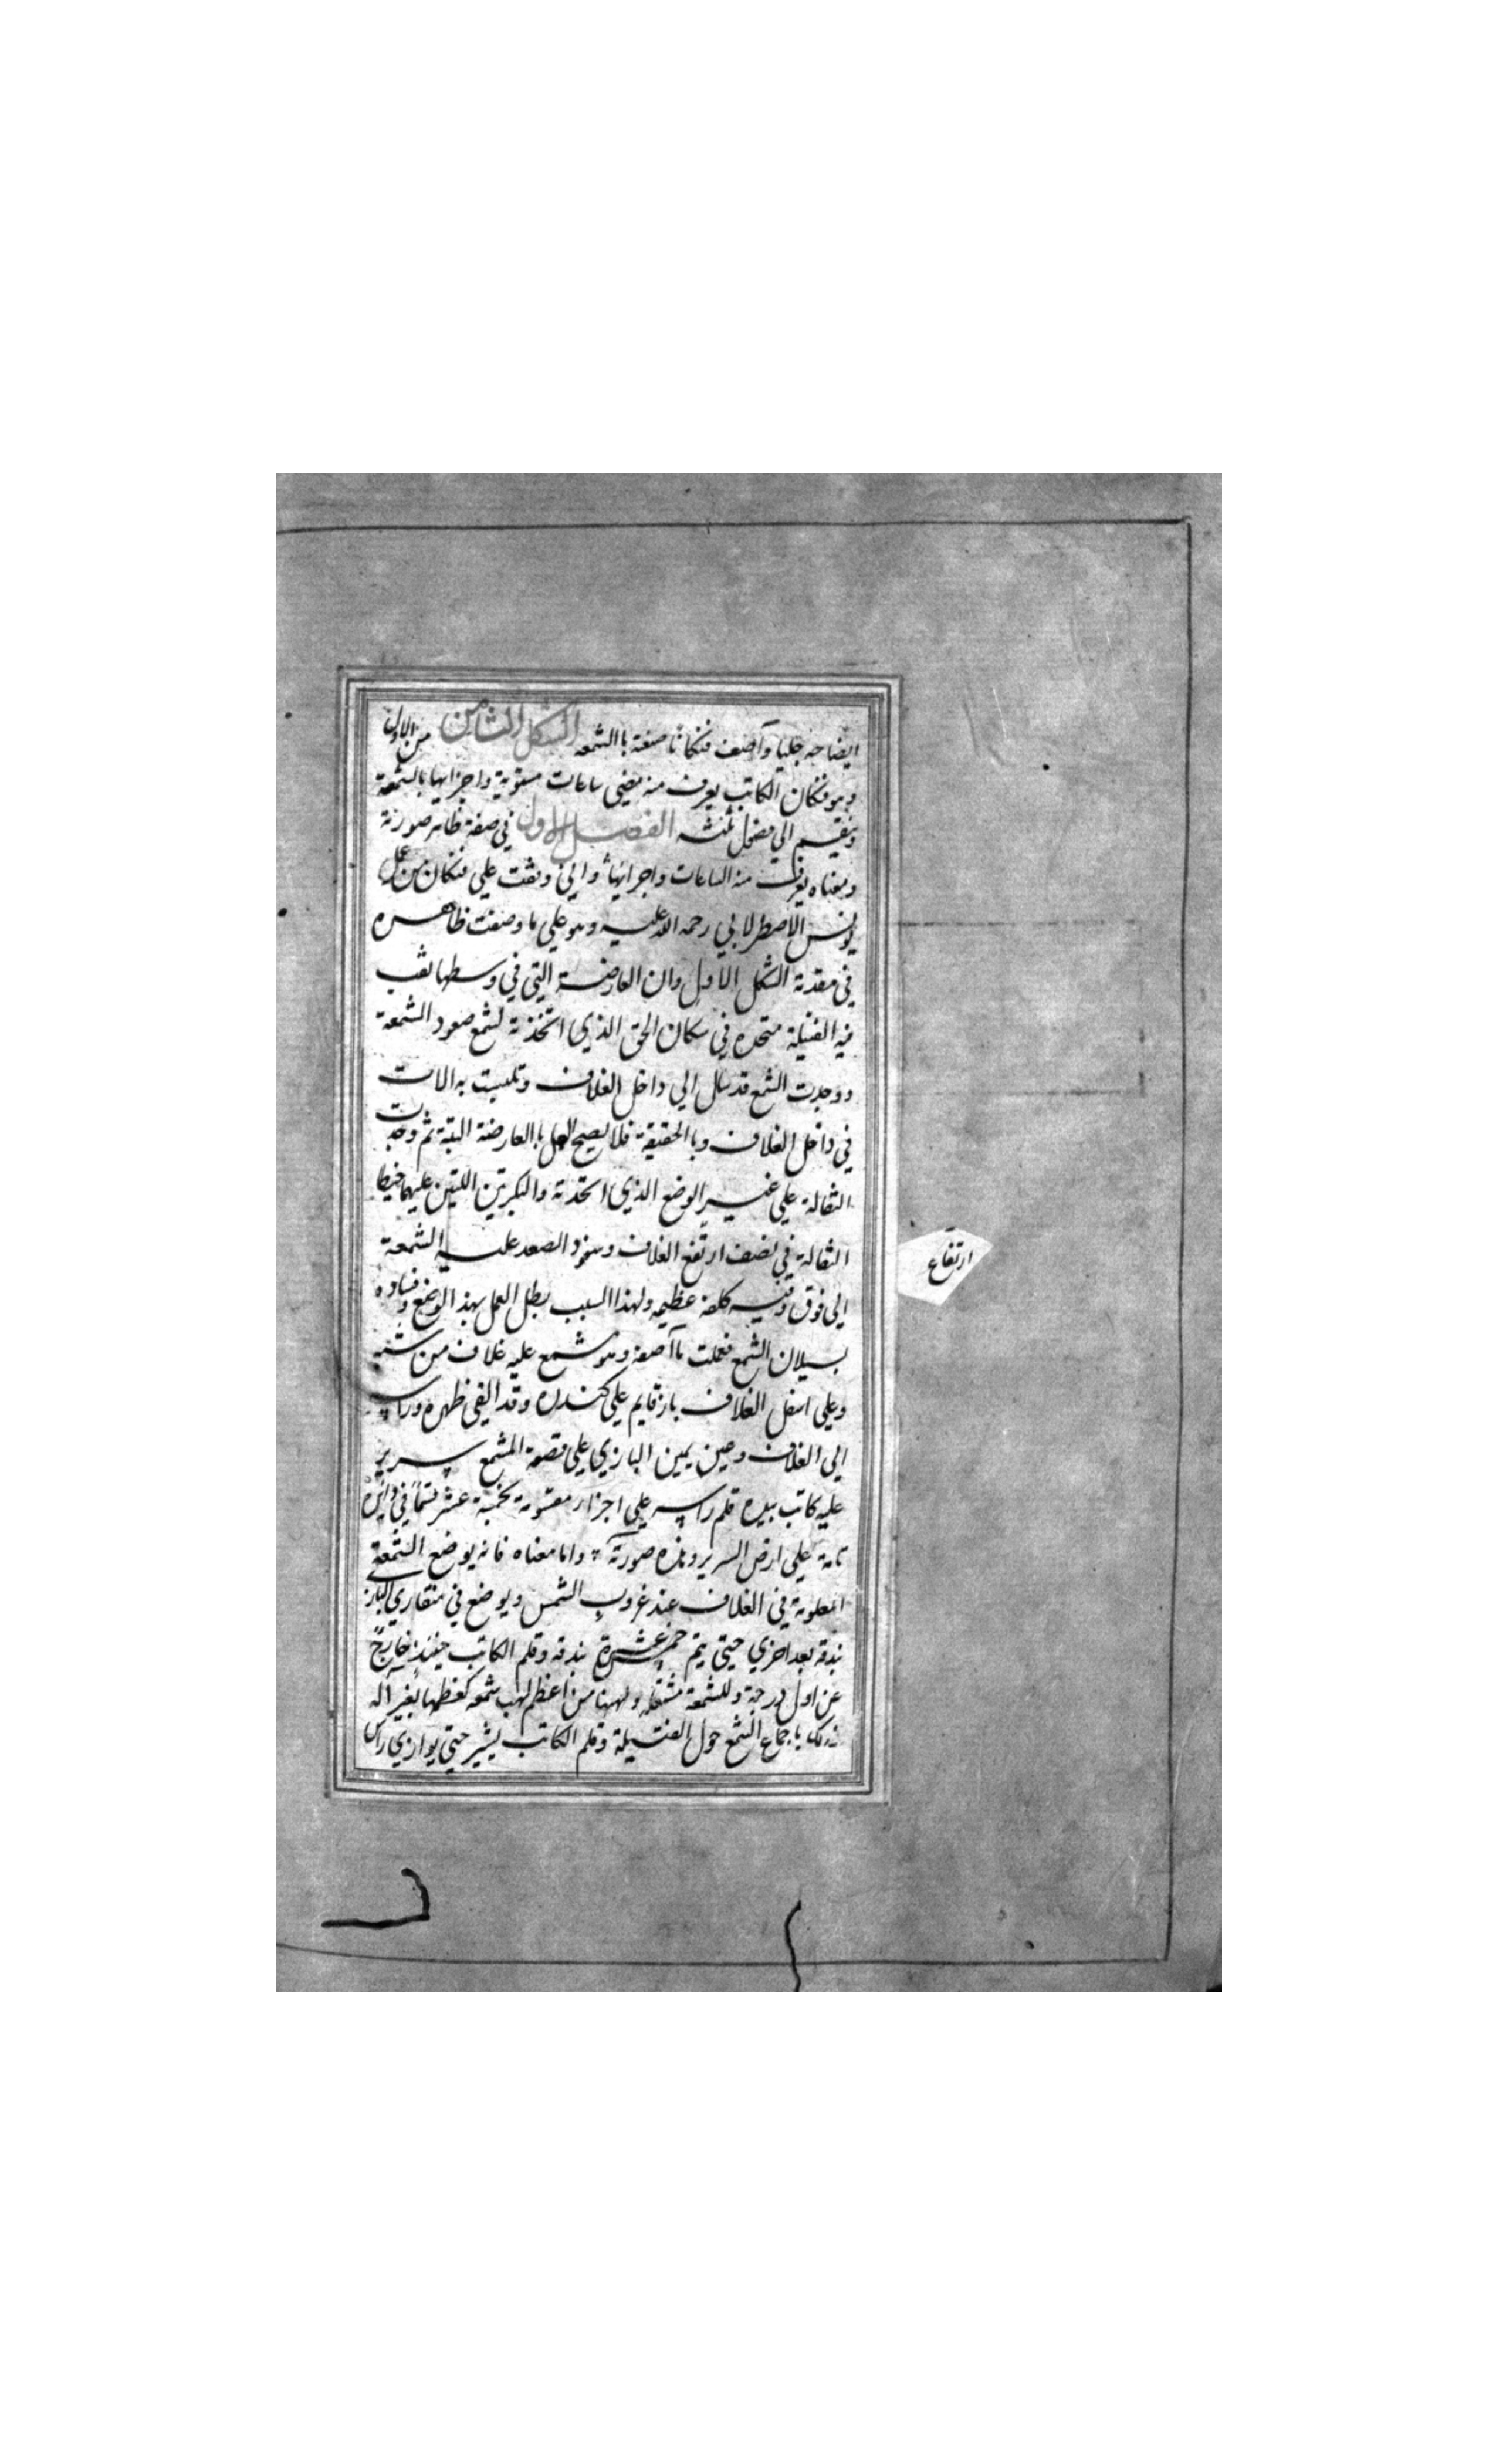 ايضاحه جليا وآصف فنكانا صنعة باالشمعه الشكل الثامن من الاول
وهو فنكان الكاتب يعرف منه مضى ساعات مستوية واجزايها بالشمعة
وينقسم الي فصول ثلثه الفصل الاول في صفة ظاهر صورته
ومعناه يعرف منه الساعات واجزائها واني وقفت علي فنكان من عمل
يونس الاصطرلابي رحمه الله عليه وهو علي ما وصفت ظاهره
في مقدمة الشكل الاول وان العارضة التي في وسطها ثقب
فيه الفتيلة متحده في مكان الحق الذي اتخذته لشمع صعود الشمعة
ووجدت الشمع قد سال الي داخل الغلاف وتلبست به الالات
في داخل الغلاف وبالحقيقة فلا يصح العمل باالعارضة البتة ثم وجدت
الثقالة علي غير الوضع الذي اتخذته والبكرتين اللتين عليهما خيطا
الثقالة في نصف ارتفع الغلاف وسفود الصعد عليه الشمعة
الي فوق وفيه كلفة عظيمه ولهذا السبب بطل العمل بهذ الوضع وفساده
بسيلان الشمع فعملت ما آصفه وهو شمع عليه غلاف من شبه
وعلي اسفل الغلاف باز قايم علي كندره وقد القي ظهره وراسه
الي الغلاف وعين يمين البازي علي قصعة المشمع سرير
عليه كاتب بيده قلم راسه علي اجزاء مقسومة بخمسة عشر قسما في دايره
تامة علي ارض السرير وهذه صورته واما معناه فانه يوضع الشمعة
المعلومة في الغلاف عند غروب الشمس ويوضع في منقاري الباز
بندقه بعد اخري حتي يتم خمس عشرة بندقه وقلم الكاتب حينئذ خارج
عن اول درجة وللشمعة مشتعلة ولهبها من اعظم لهب شمعه كعظمها بغير آله
ذلك باجماع الشمع حول الفتيلة وقلم الكاتب يشير حتي يوازي راس
ارتفاع